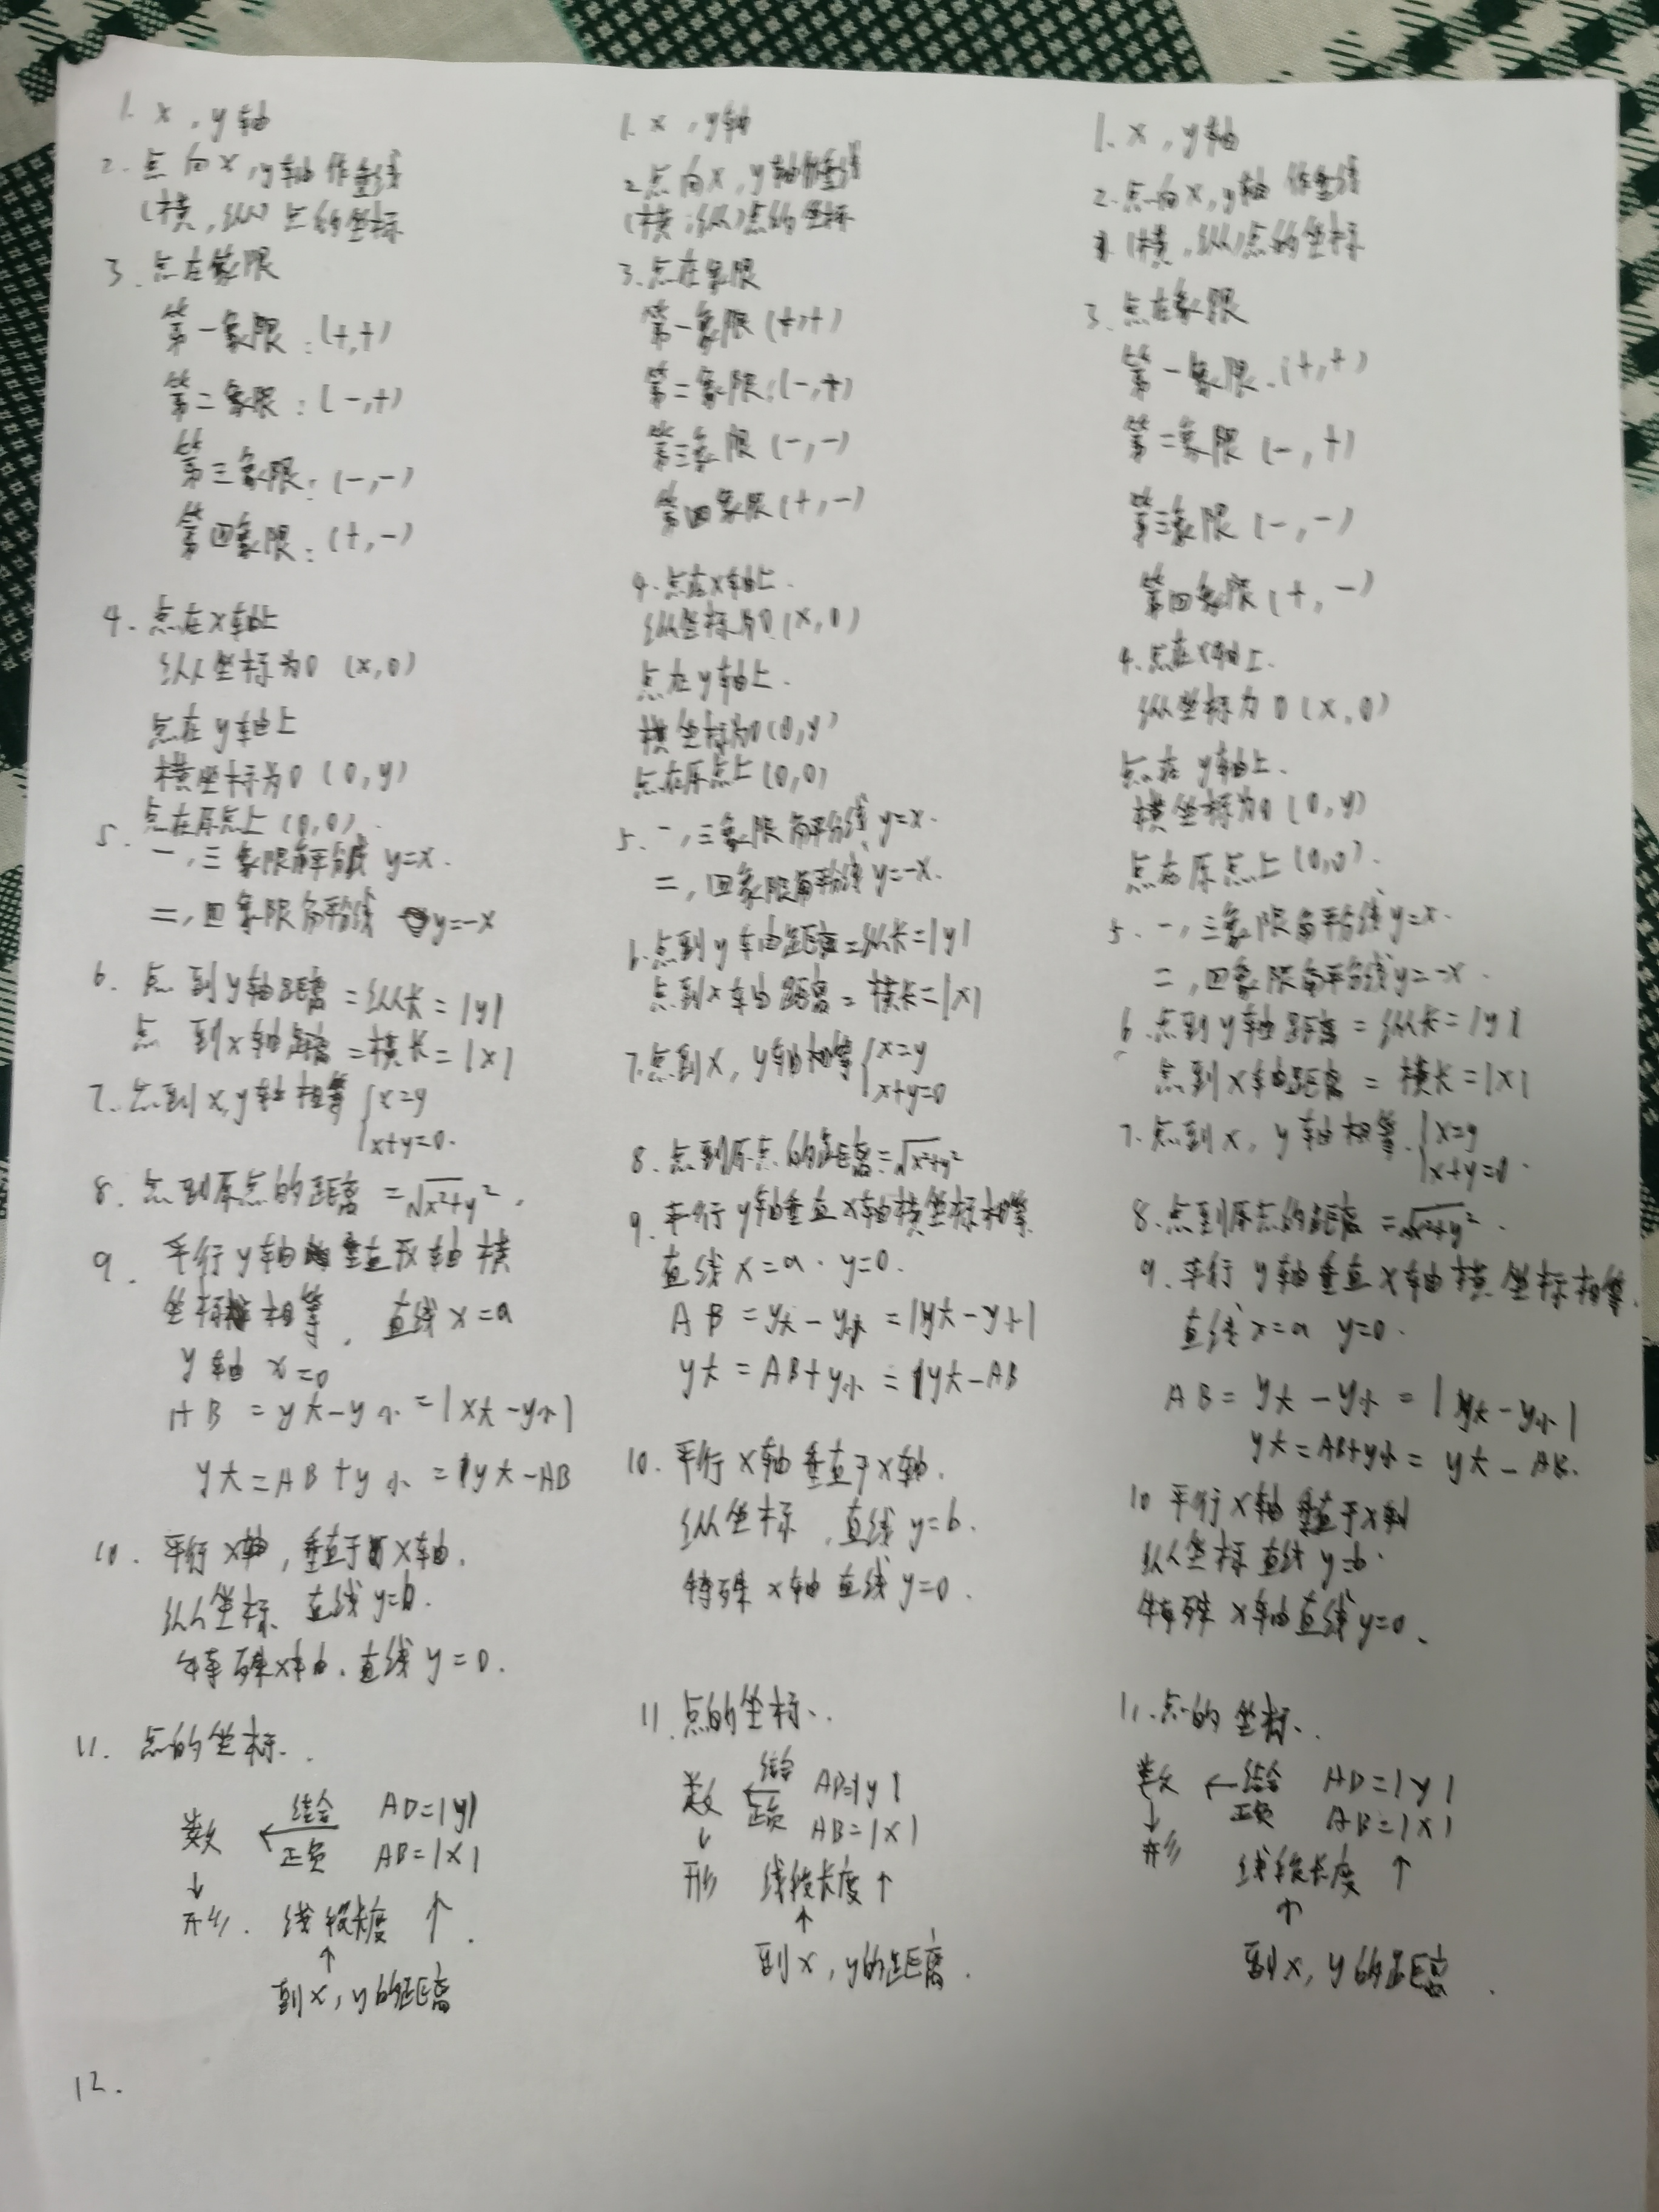 1. x , y轴
2. 点向x,y轴作垂线
(横,纵)点的坐标
3. 点在象限
第一象限:(+,+)
第二象限:(-,+)
第三象限:(-,-)
第四象限:(+,-)
4. 点在x轴上
纵坐标为0 (x,0)
点在y轴上
横坐标为0 (0,y)
点在原点上 (0,0).
5. 一,三象限角平分线 y=x.
二,四象限角平分线 y=-x
6. 点到y轴距离=纵长=|y|
点到x轴距离=横长=|x|
7. 点到x,y轴相等 {x=y
x+y=0.
8. 点到原点的距离=√x²+y².
9. 平行y轴垂直x轴横
坐标相等, 直线x=a
y轴 x=0
AB=y大-y小=|x大-y小|
y大=AB+y小=y大-AB
10. 平行x轴,垂直于x轴.
纵坐标 直线y=b.
特殊x轴.直线y=0.
11. 点的坐标..
数 ← 结合 AD=|y|
正负 AB=|x|
↓
形. 线段长度 ↑.
↑
到x,y的距离
12.
1. x , y轴
2.点向x,y轴作垂线
(横,纵)点的坐标
3.点在象限
第一象限(+,+)
第二象限:(-,+)
第三象限(-,-)
第四象限(+,-)
4.点在x轴上.
纵坐标为0(x,0)
点在y轴上.
横坐标为0(0,y)
点在原点上(0,0)
5. 一,三象限角平分线y=x.
二,四象限角平分线y=-x.
6.点到y轴距离=纵长=|y|
点到x轴距离=横长=|x|
7.点到x,y轴相等{x=y
x+y=0
8.点到原点的距离=√x²+y²
9.平行y轴垂直x轴横坐标相等.
直线x=a. y=0.
AB=y大-y小=|y大-y小|
y大=AB+y小=y大-AB
10.平行x轴垂直于x轴.
纵坐标,直线y=b.
特殊x轴直线y=0.
11.点的坐标..
数 ← 结合 AD=|y|
正负 AB=|x|
↓
形 线段长度↑
↑
到x,y的距离.
1. x , y轴
2.点向x,y轴作垂线
(横,纵)点的坐标
3.点在象限
第一象限.(+,+)
第二象限(-,+)
第三象限(-,-)
第四象限(+,-)
4.点在x轴上.
纵坐标为0(x,0)
点在y轴上.
横坐标为0(0,y)
点在原点上(0,0).
5.一,三象限角平分线y=x.
二,四象限角平分线y=-x.
6.点到y轴距离=纵长=|y|
点到x轴距离=横长=|x|
7.点到x,y轴相等.{x=y
x+y=0.
8.点到原点的距离=√x²+y².
9.平行y轴垂直x轴横坐标相等.
直线x=a y=0.
AB=y大-y小=|y大-y小|
y大=AB+y小=y大-AB.
10平行x轴垂直于x轴
纵坐标直线y=b.
特殊x轴直线y=0.
11.点的坐标..
数 ← 结合 AD=|y|
正负 AB=|x|
↓
形
线段长度 ↑
↑
到x,y的距离.